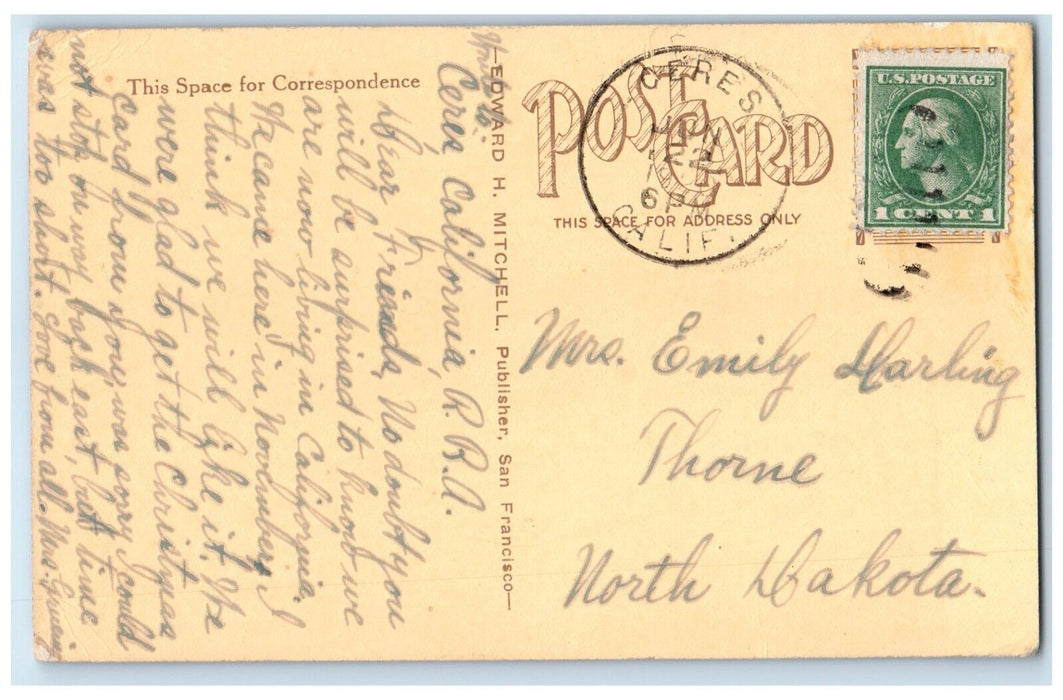 This Space for Correspondence
Ceres California, R. R. A.
Dear Friends, No doubt you
will be surprised to know we
are now living in California.
We came here in November, I
think we will like it. We
were glad to get the Christmas
card from you, was sorry I could
not stop on way back east, but time
was too short. Love from all. Mrs.
—EDWARD H. MITCHELL, Publisher, San Francisco—
POST CARD
THIS SPACE FOR ADDRESS ONLY
CERES
JUN
2
6 P
CALIF.
U.S. POSTAGE
1 CENT 1
Mrs. Emily Harling
Thorne
North Dakota.